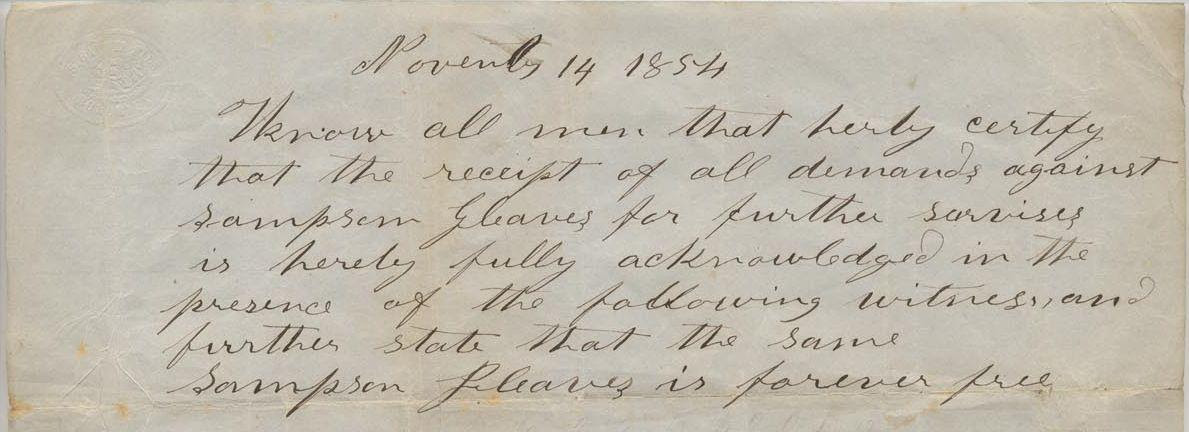 November 14 1854
Know all men that herby certify
that the receipt of all demands against
Sampson Gleaves for further servises
is hereby fully acknowledged in the
presence of the following witness, and
further state that the same
Sampson Gleaves is forever free